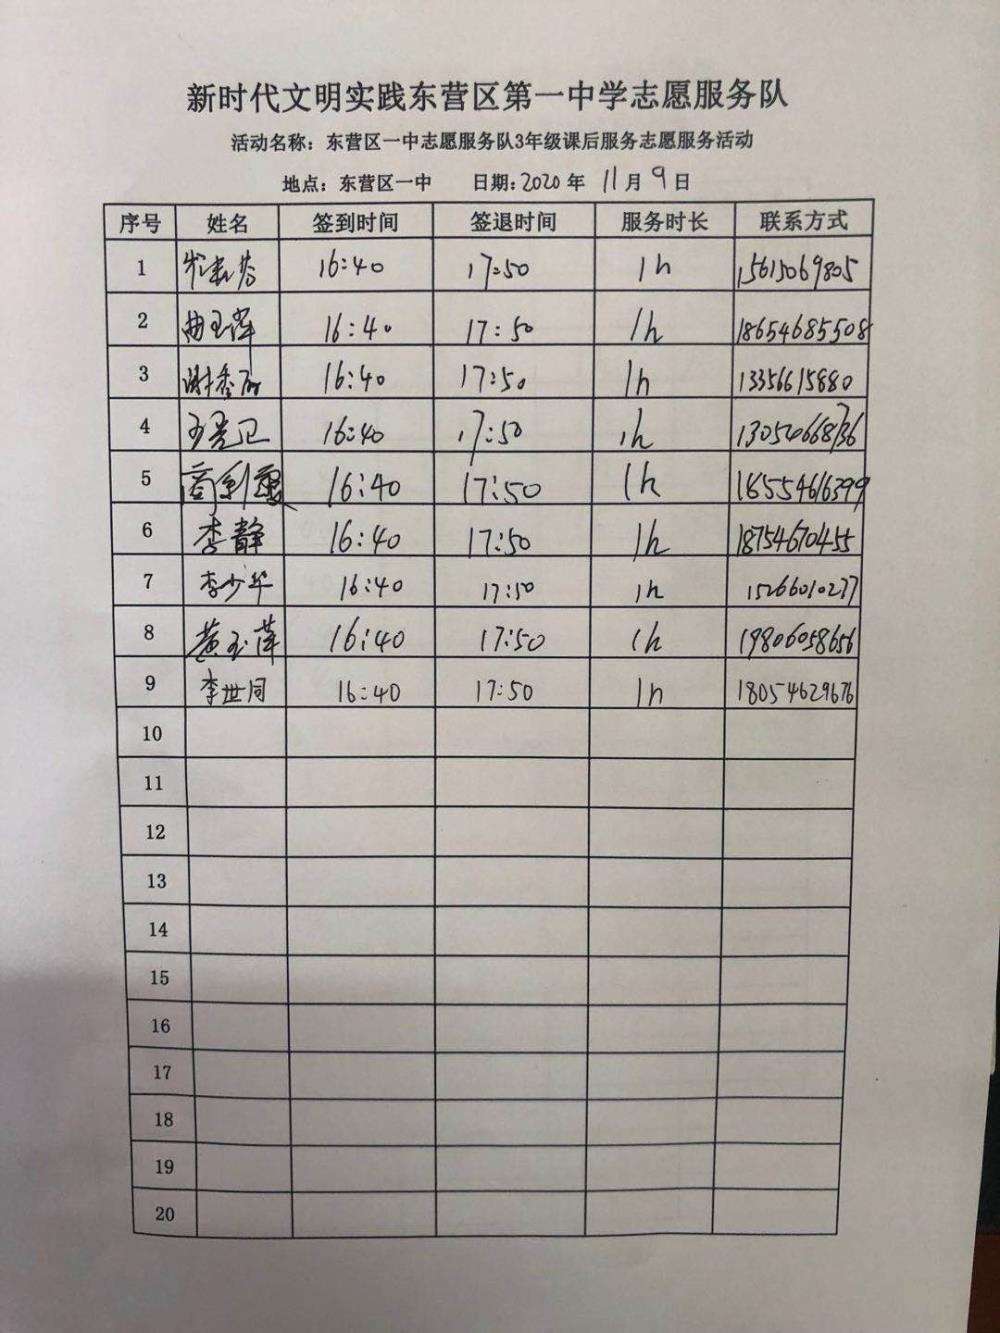 新时代文明实践东营区第一中学志愿服务队
活动名称：东营区一中志愿服务队3年级课后服务志愿服务活动
地点：东营区一中 日期:2020年 11月9日
序号 姓名 签到时间 签退时间 服务时长 联系方式
1 16:40 17:50 1h 15615069805
2 曲玉萍 16:40 17:50 1h 18654685508
3 16:40 17:50 1h 13356615880
4 16:40 17:50 1h 13054668736
5 16:40 17:50 1h 18554616399
6 李静 16:40 17:50 1h 18754670455
7 李少华 16:40 17:50 1h 15266010277
8 黄玉萍 16:40 17:50 1h 19806058656
9 李世同 16:40 17:50 1h 18054629676
10
11
12
13
14
15
16
17
18
19
20